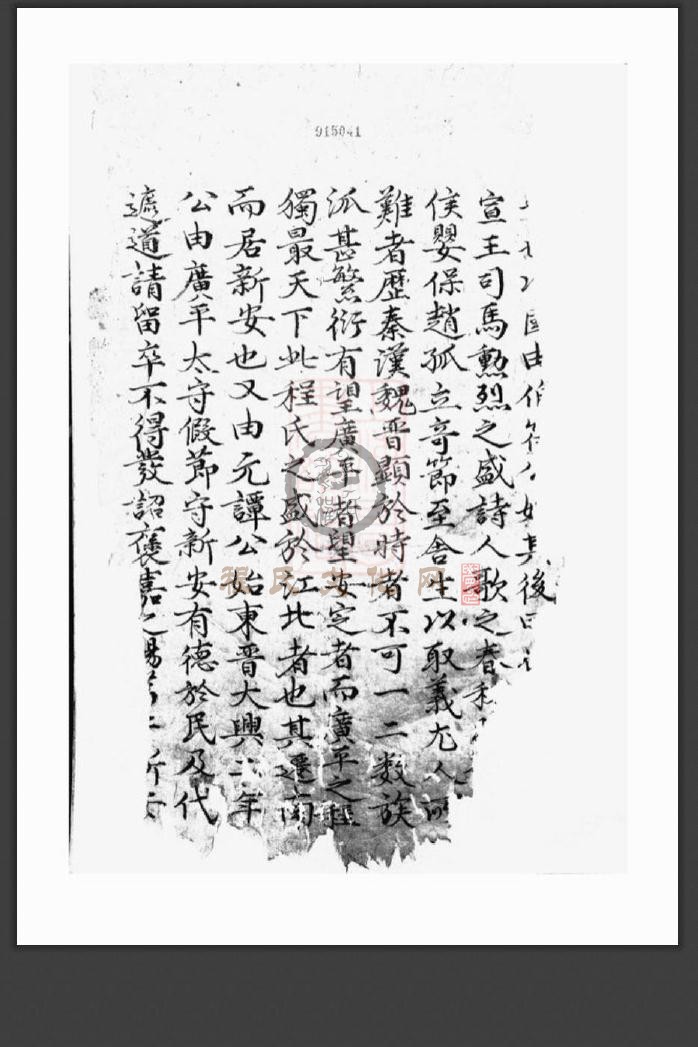 915041
國由伯符
後曰
宣王司馬勲烈之盛詩人歌之春秋
侯嬰保趙孤立奇節至舍生以取義尤人
難者歷秦漢魏晋顯於時者不可一二数族
派甚繁衍有望廣平者望安定者而廣平之程
獨最天下此程氏之盛於江北者也其遷南
而居新安也又由元譚公始東晋大興二年
公由廣平太守假節守新安有德於民及代
遮道請留卒不得發詔襃嘉之賜